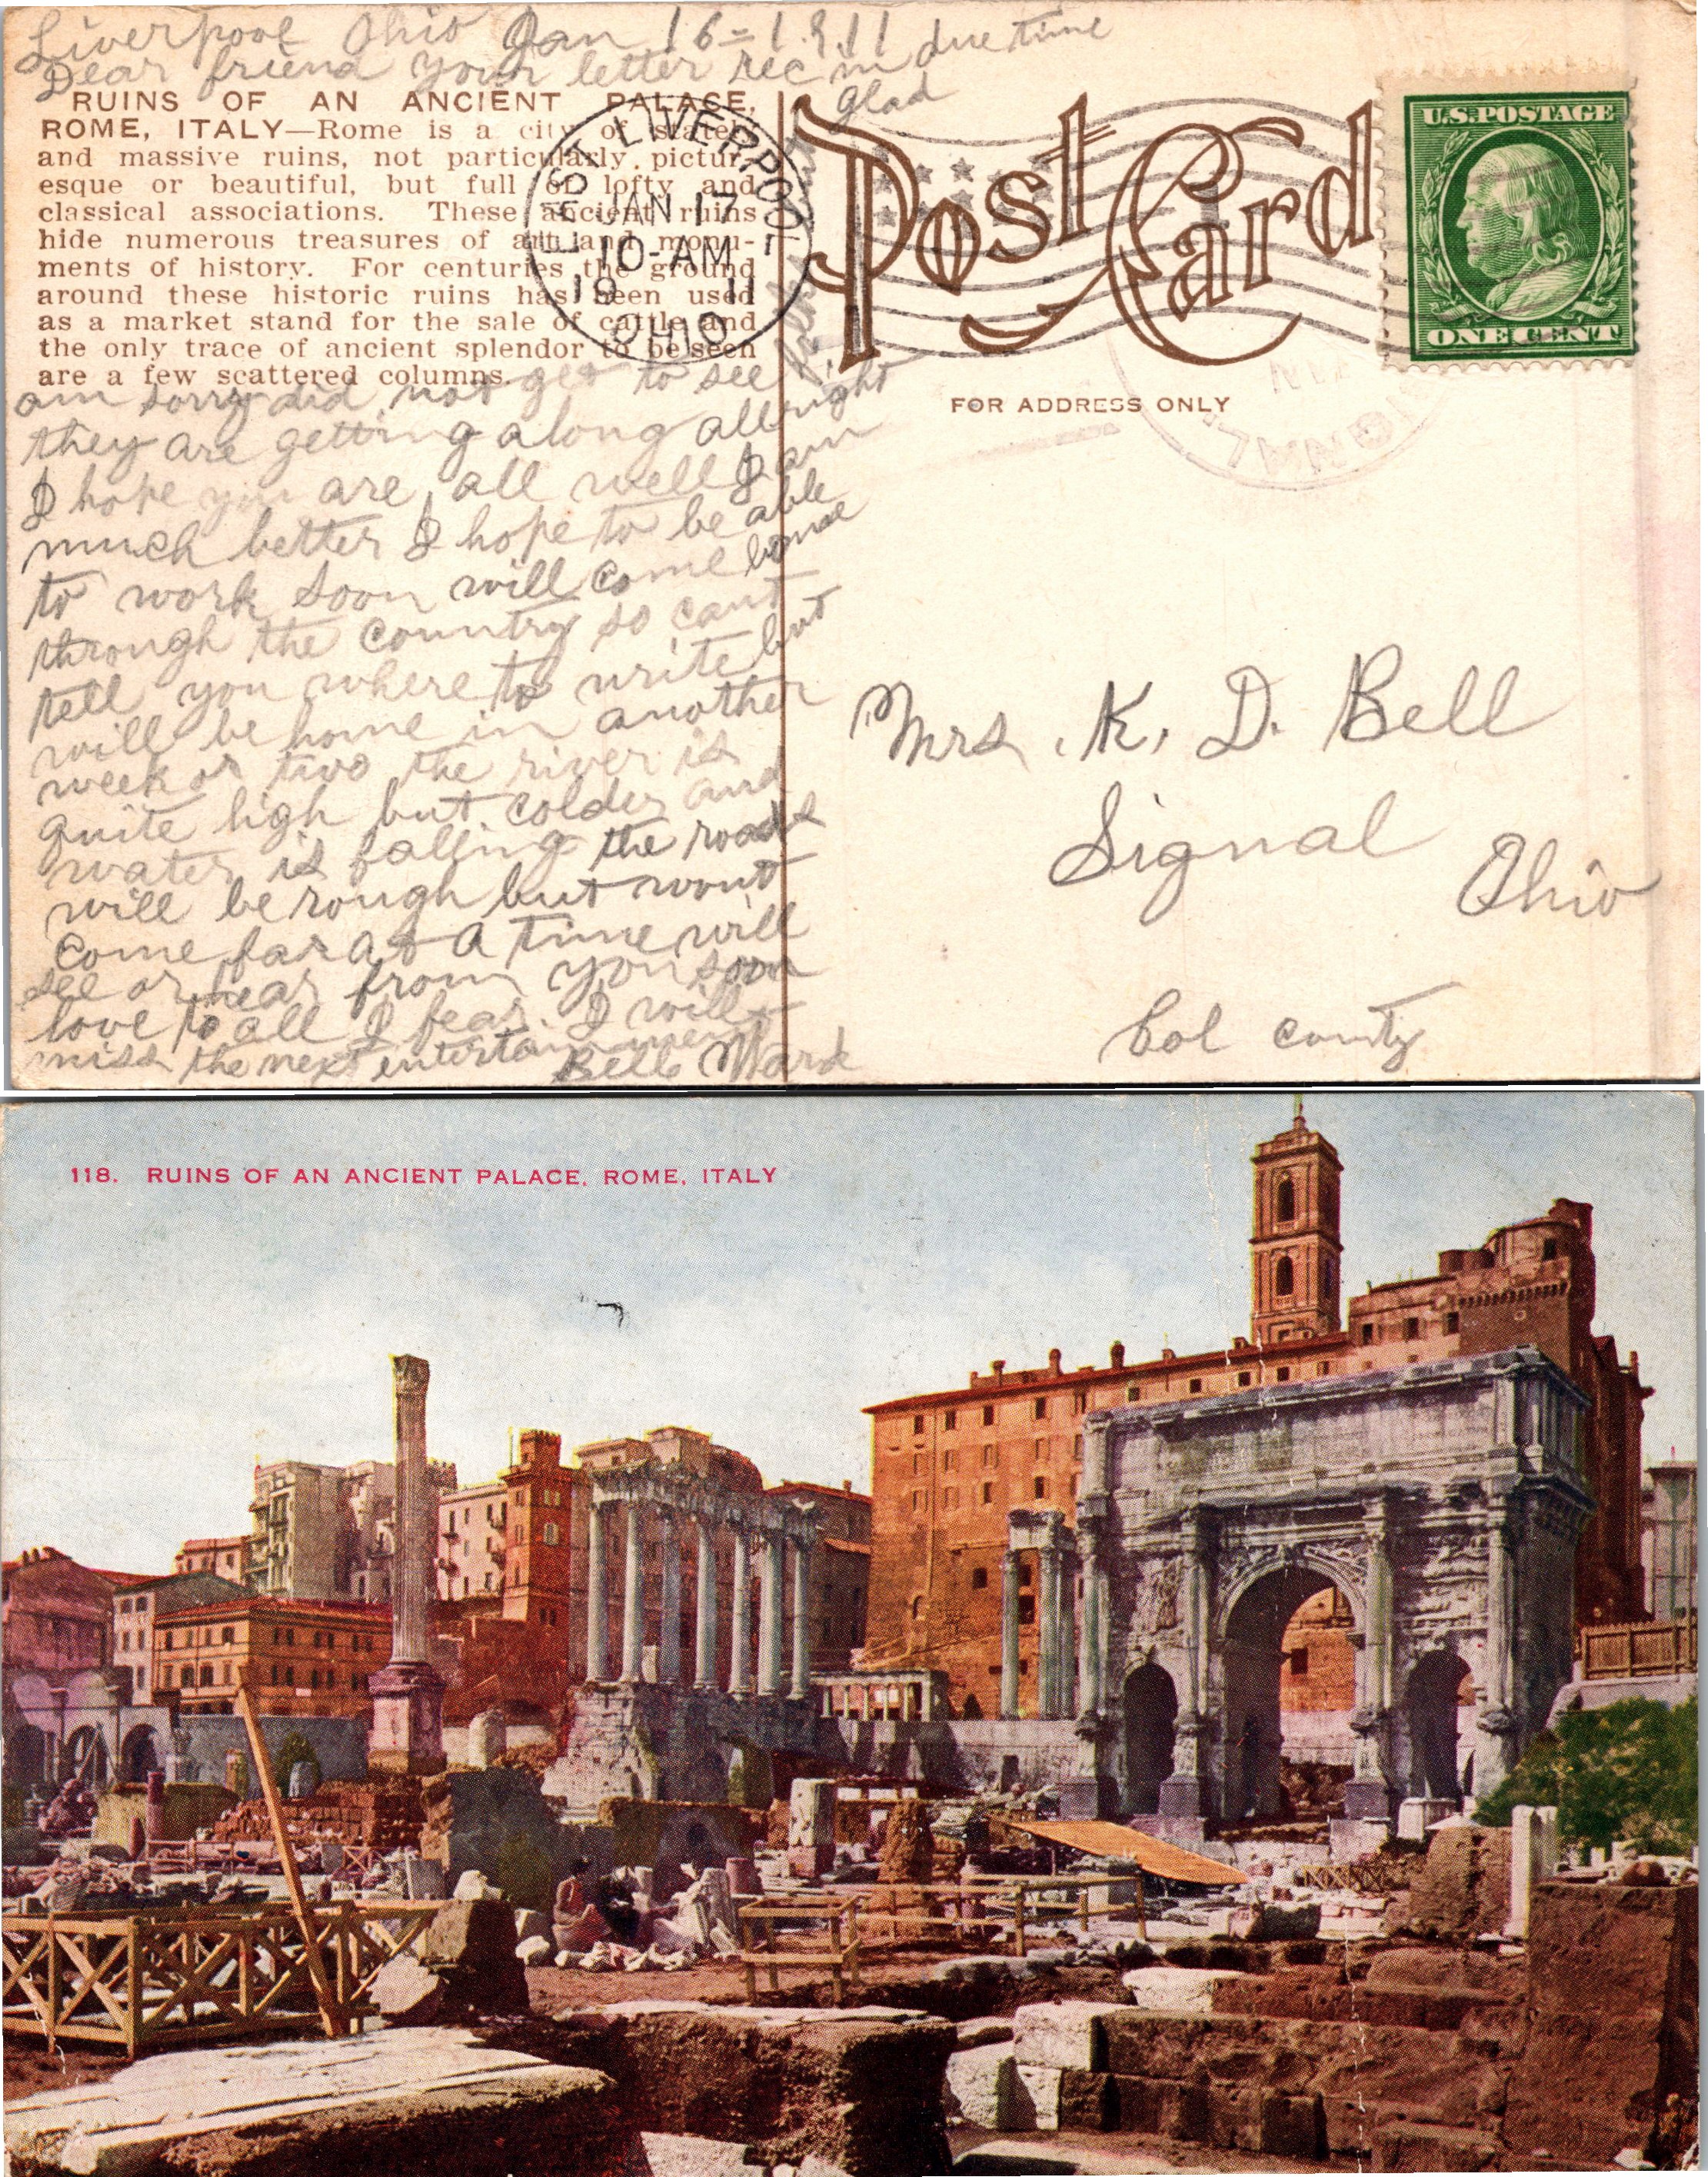 Liverpool Ohio Jan 16=1911
Dear friend your letter rec in due time
glad
RUINS OF AN ANCIENT PALACE,
ROME, ITALY—Rome is a city of stately
and massive ruins, not particularly pictur-
esque or beautiful, but full of lofty and
classical associations. These ancient ruins
hide numerous treasures of art and monu-
ments of history. For centuries the ground
around these historic ruins has been used
as a market stand for the sale of cattle and
the only trace of ancient splendor to be seen
are a few scattered columns.
am sorry did not get to see
they are getting along all right
I hope you are all well I am
much better I hope to be able
to work soon will come home
through the country so cant
tell you where to write but
will be home in another
week or two the river is
quite high but colder and
water is falling the roads
will be rough but wont
come far at a time will
see or hear from you soon
love to all I fear I will
miss the next entertainment
Bell Ward
EAST LIVERPOOL
JAN 17
10-AM
19 11
OHIO
Post Card
U.S. POSTAGE
ONE CENT
FOR ADDRESS ONLY
SIGNAL
JAN
Mrs. K. D. Bell
Signal
Ohio
Col county
118. RUINS OF AN ANCIENT PALACE, ROME, ITALY